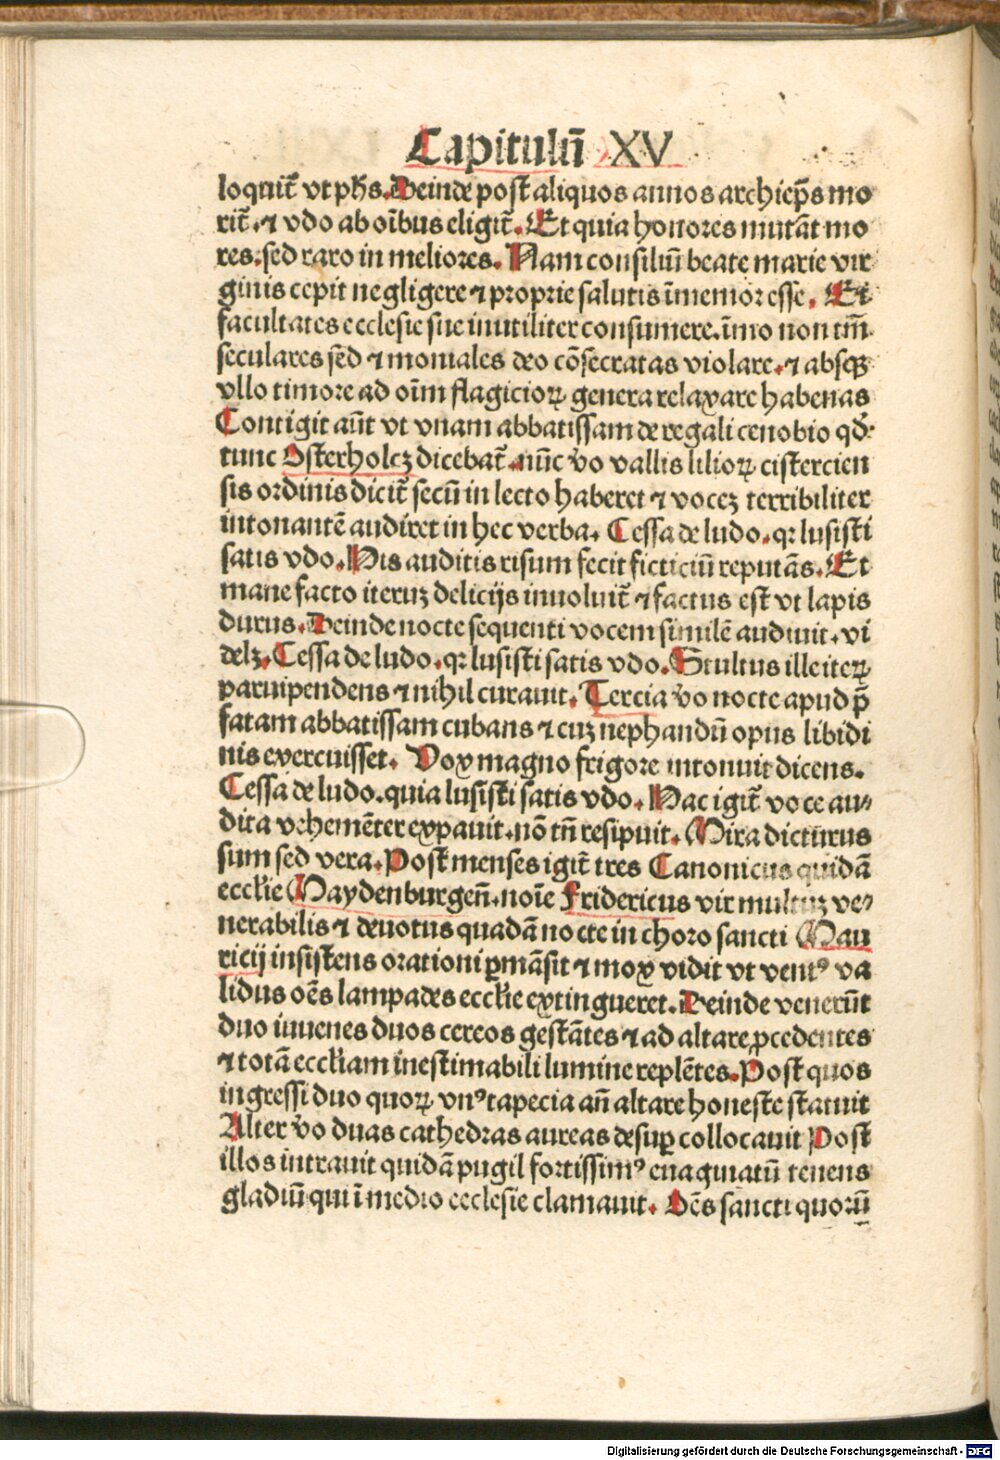 Capitulū XV
loquit̄ vt pħs. Deinde post aliquos annos archiep̄s mo
rit̄. ⁊ vdo ab oībus eligit̄. Et quia honores mutāt mo
res. sed raro in meliores. Nam consiliū beate marie vir
ginis cepit negligere ⁊ proprie salutis īmemor esse. Et
facultates ecclesie sue inutiliter consumere. īmo non tm̄
seculares sed ⁊ moniales deo cōsecratas violare. ⁊ absqꝫ
vllo timore ad oīm flagicioꝝ genera relaxare habenas
Contigit aūt vt vnam abbatissam de regali cenobio qd̄
tunc Osterholcz dicebat̄. nūc v̄o vallis lilioꝝ cistercien
sis ordinis dicit̄ secū in lecto haberet ⁊ voceꝫ terribiliter
intonantē audiret in hec verba. Cessa de ludo. qꝛ lusisti
satis vdo. His auditis risum fecit ficticiū reputās. Et
mane facto iteruꝫ delicijs inuoluit̄ ⁊ factus est vt lapis
durus. Deinde nocte sequenti vocem similē audiuit. vi
delꝫ. Cessa de ludo. qꝛ lusisti satis vdo. Stultus ille iteꝝ
paruipendens ⁊ nihil curauit. Tercia v̄o nocte apud p̄
fatam abbatissam cubans ⁊ cuꝫ nephandū opus libidi
nis exercuisset. Vox magno frigore intonuit dicens.
Cessa de ludo. quia lusisti satis vdo. Hac igit̄ voce au⸗
dita vehemēter expauit. nō tn̄ resipuit. Mira dicturus
sum sed vera. Post menses igit̄ tres Canonicus quidā
eccłie Maydenburgen̄. noīe Fridericus vir multuꝫ ve⸗
nerabilis ⁊ deuotus quadā nocte in choro sancti Mau
ricij insistens orationi ꝑmāsit ⁊ mox vidit vt ventꝰ va
lidus oēs lampades eccłie extingueret. Deinde venerūt
duo iuuenes duos cereos gestātes ⁊ ad altare ꝓcedentes
⁊ totā eccłiam inestimabili lumine replētes. Post quos
ingressi duo quoꝝ vnꝰ tapecia an̄ altare honeste statuit
Alter v̄o duas cathedras aureas desuꝑ collocauit Post
illos intrauit quidā pugil fortissimꝰ euaginatū tenens
gladiū qui ī medio ecclesie clamauit. Oēs sancti quorū
Digitalisierung gefördert durch die Deutsche Forschungsgemeinschaft - DFG